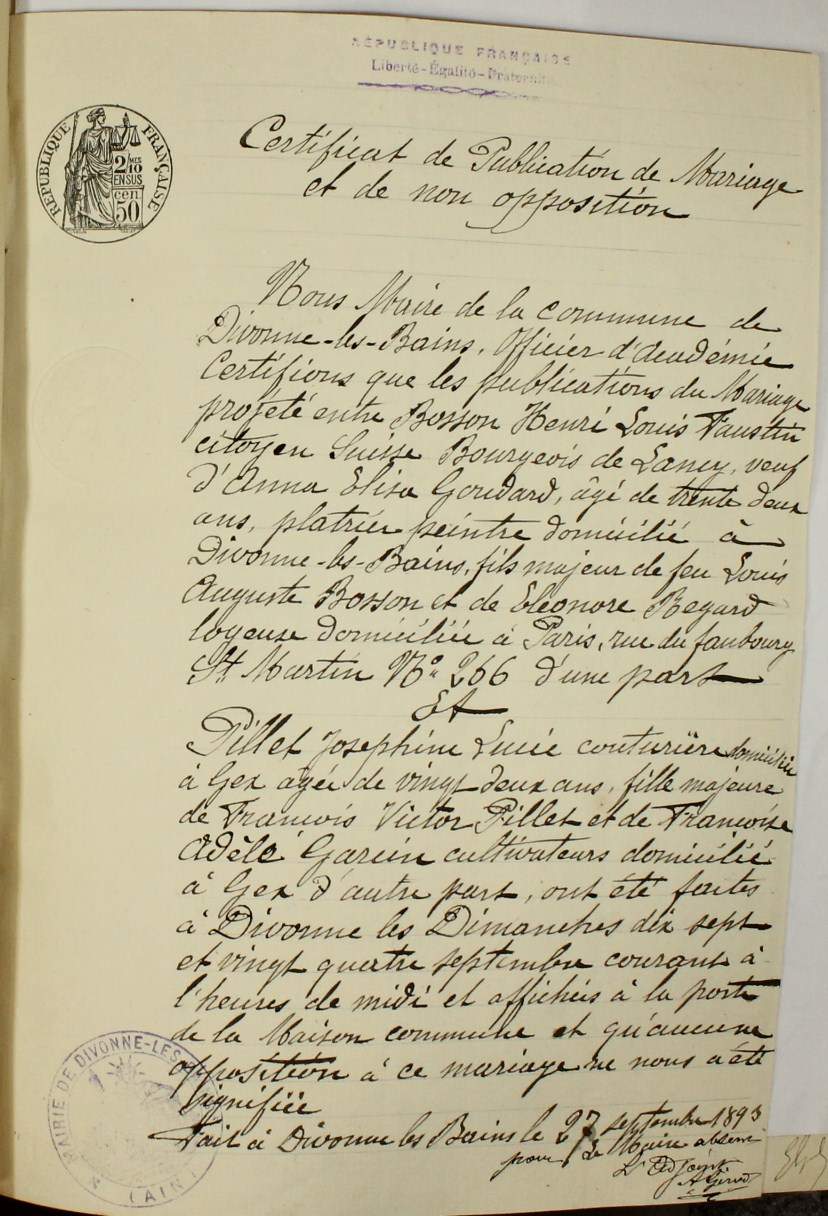 RÉPUBLIQUE FRANÇAISE
Liberté-Égalité-Fraternité
RÉPUBLIQUE FRANÇAISE
2/10 MES
EN SUS
50 cen
Certificat de Publication de Mariage
et de non opposition
Nous Maire de la commune de
Divonne-les-Bains, Officier d'Académie
Certifions que les publications du Mariage
projété entre Bosson Henri Louis Faustin
citoyen Suisse Bourgeois de Lancy, veuf
d'Anna Elisa Goudard, âgé de trente deux
ans, platrier peintre domicilié à
Divonne-les-Bains, fils majeur de feu Louis
Auguste Bosson et de Eléonore Regard
logeuse domiciliée à Paris, rue du faubourg
St Martin No 266 d'une part
Et
Pillet Josephine Lucie couturière domiciliée
à Gex agée de vingt deux ans, fille majeure
de Francois Victor Pillet et de Francoise
Adèle Garcin cultivateurs domicilié
à Gex d'autre part, ont été faites
à Divonne les Dimanches dix sept
et vingt quatre septembre courant à
l'heures de midi et affichées à la porte
de la Maison commune et qu'aucune
opposition à ce mariage ne nous a été
signifiée
Fait à Divonne les Bains le 27 septembre 1893
pour le Maire absent
L'Adjoint
MAIRIE DE DIVONNE-LES
(AIN)